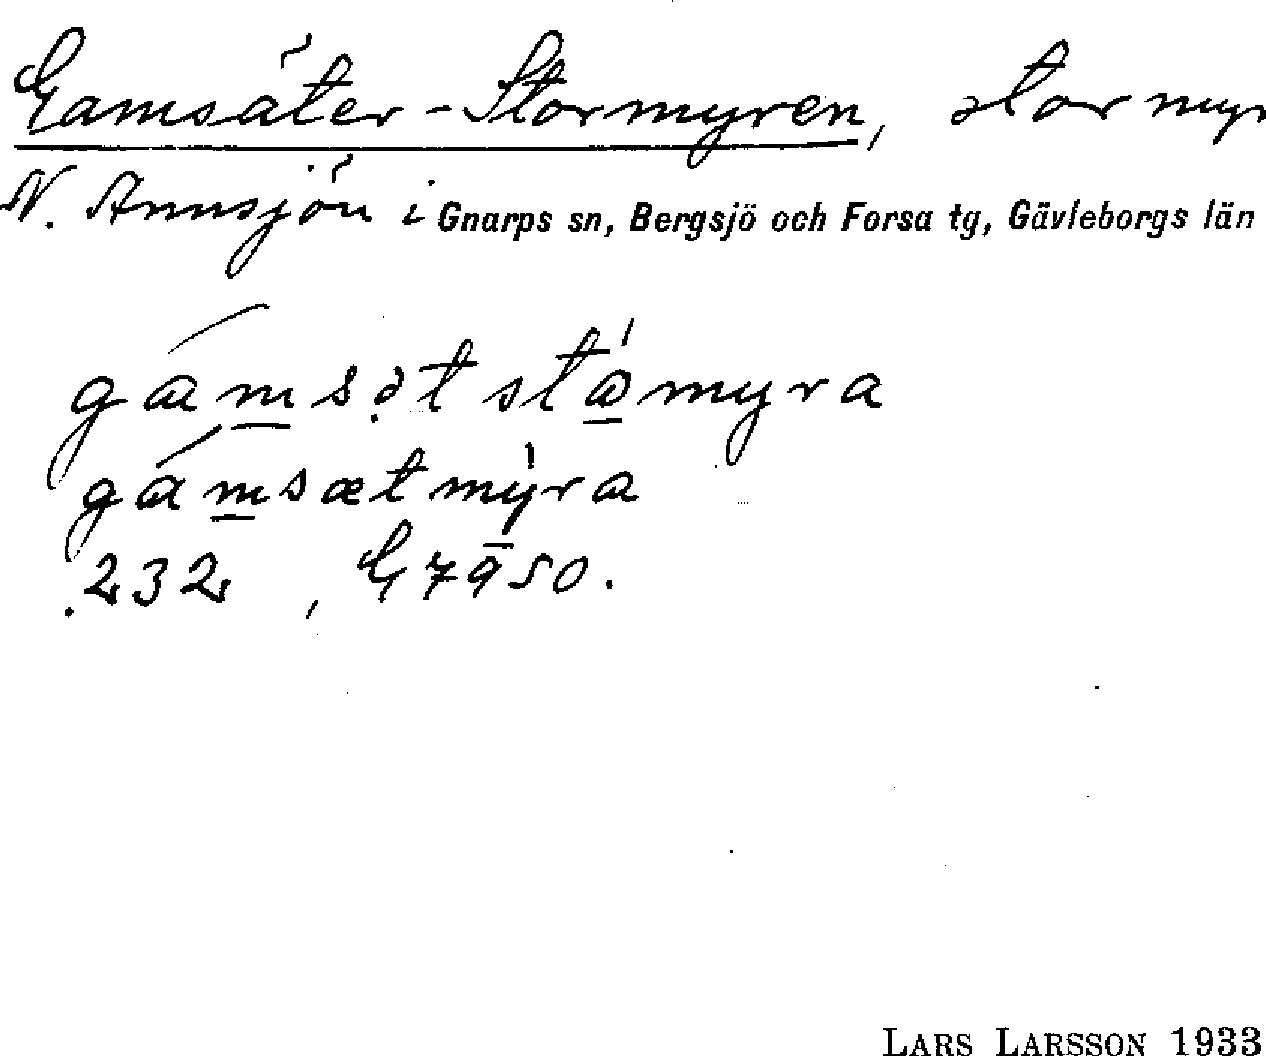 Gamsäter-Stormyren, stor myr
N. Annsjön i Gnarps sn, Bergsjö och Forsa tg, Gävleborgs län
gámsət stámyra
gámsætmýra
232, G7950.
LARS LARSSON 1933